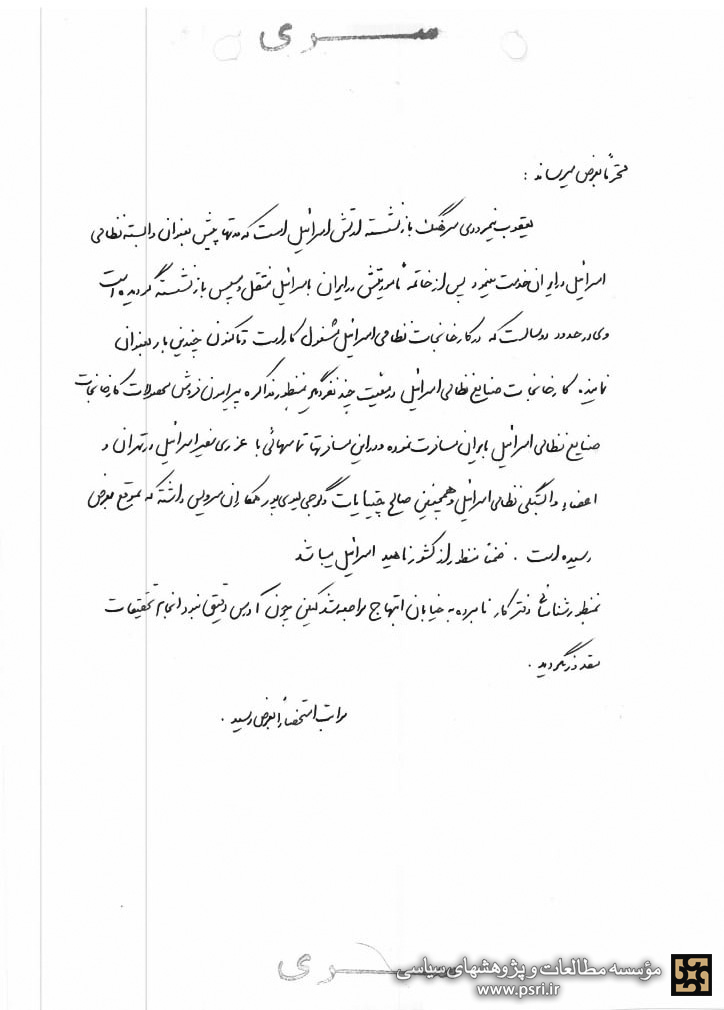 سری
محترماً بعرض میرساند :
یعقوب نیمرودی سرهنگ بازنشسته ارتش اسرائیل است که مدتها پیش بعنوان وابسته نظامی
اسرائیل در ایران خدمت مینمود و پس از خاتمه مأموریتش در ایران باسرائیل منتقل و سپس بازنشسته گردیده است
وی در حدود دو سالست که در کارخانجات نظامی اسرائیل مشغول کار است و تاکنون چندین بار بعنوان
نماینده کارخانجات صنایع نظامی اسرائیل در معیت چند نفر دیگر بمنظور مذاکره پیرامون فروش محصولات کارخانجات
صنایع نظامی اسرائیل بایران مسافرت نموده و در این مسافرتها تماسهائی با عزری سفیر اسرائیل در تهران و
اعضاء وابستگی نظامی اسرائیل و همچنین صالح چیتایات و همکاران سرویس داشته که بموقع بعرض
رسیده است . ضمناً منظور از کشور ناهید اسرائیل میباشد
بمنظور شناسائی دفتر کار نامبرده به خیابان ابتهاج مراجعه شد لیکن چون آدرس دقیق نبود انجام تحقیقات
مقدور نگردید .
مراتب استحضاراً بعرض رسید .
سری
مؤسسه مطالعات و پژوهشهای سیاسی
www.psri.ir